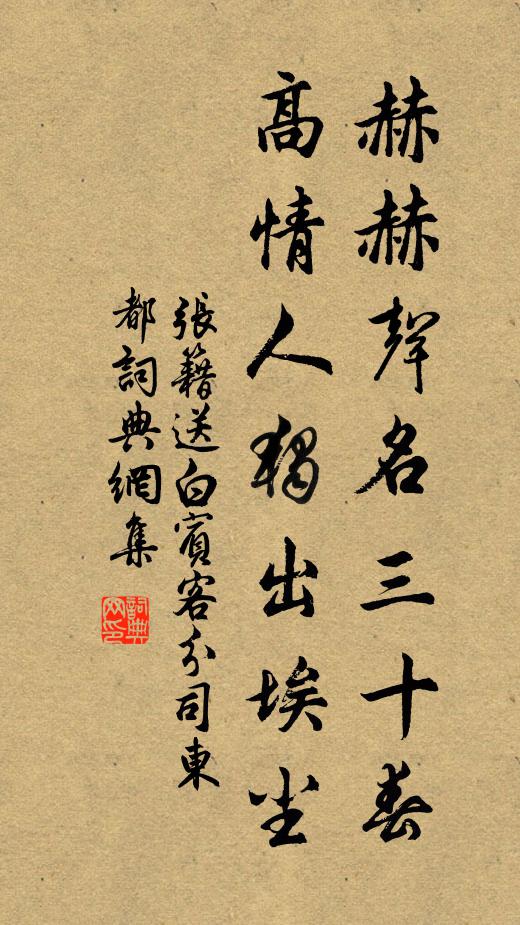 赫赫聲名三十春
高情人獨出埃塵
張籍送白賓客分司東
都詞典網集
詞典
网印